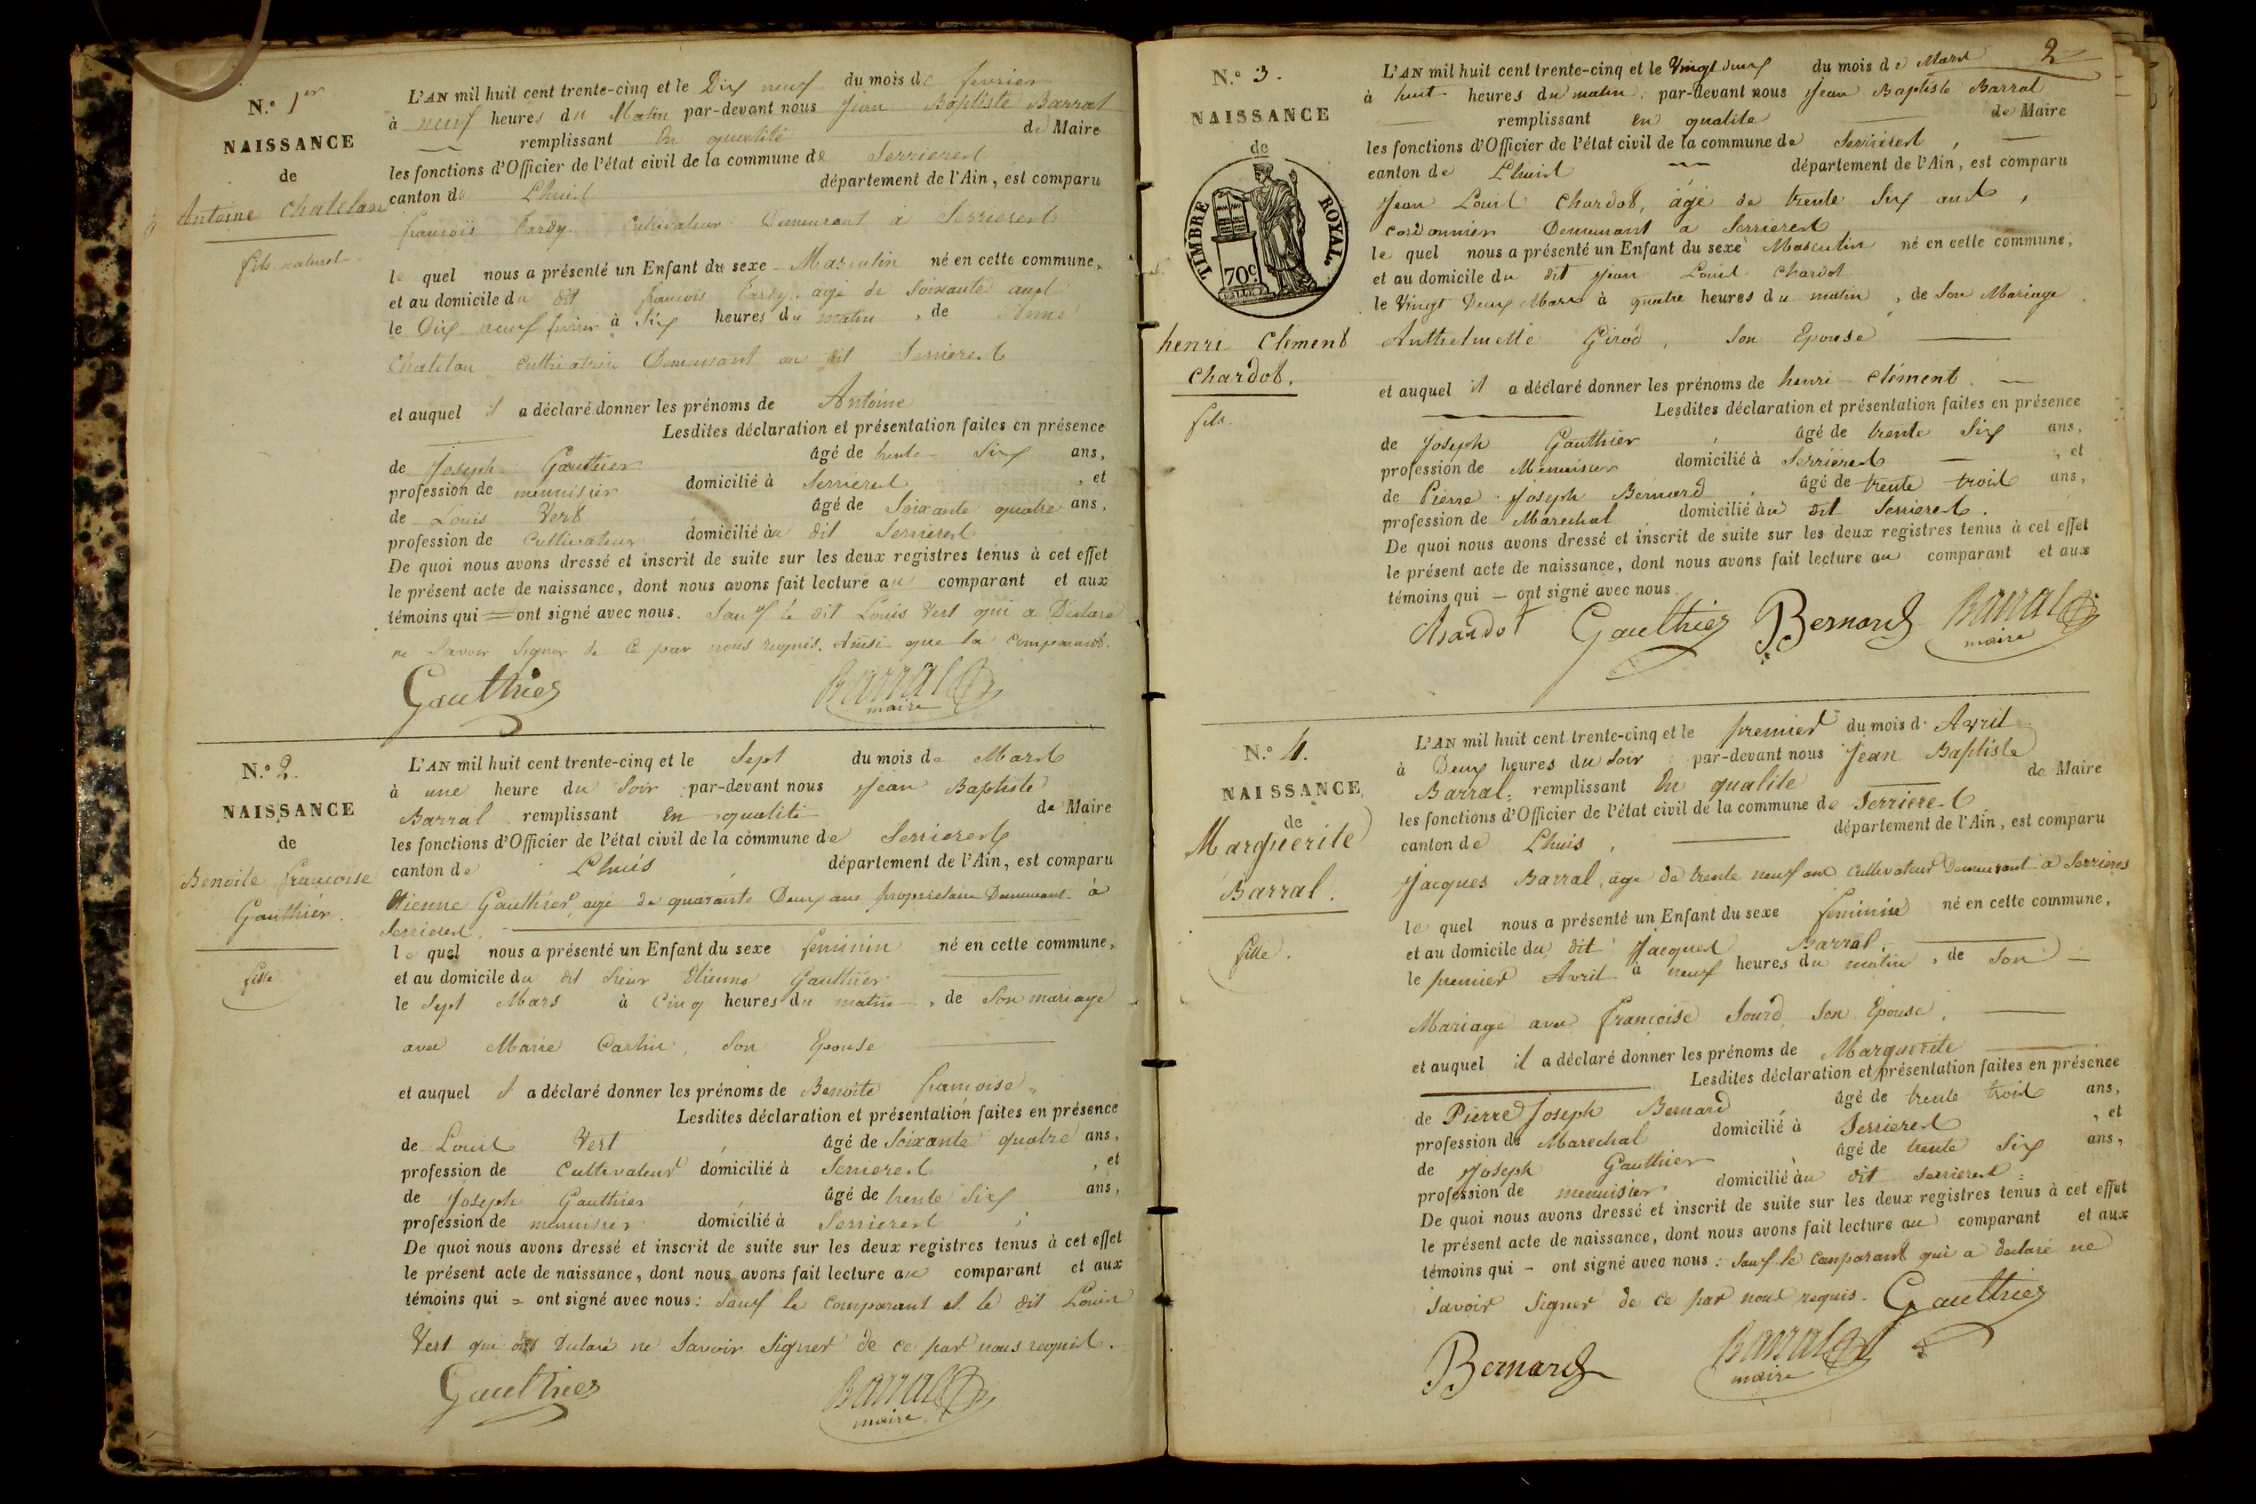 N.º 1er
NAISSANCE
de
Antoine Chatelan
fils naturel
L'AN mil huit cent trente-cinq et le Dix neuf du mois de fevrier
à neuf heures du Matin par-devant nous Jean Baptiste Barral
remplissant En qualité de Maire
les fonctions d'Officier de l'état civil de la commune de Serrieres
canton de Lhuis département de l'Ain, est comparu
françois Tardy Cultivateur Demeurant à Serrieres
le quel nous a présenté un Enfant du sexe Masculin né en cette commune,
et au domicile du dit françois Tardy agé de soixante ans
le Dix neuf fevrier à Six heures du matin, de Anne
Chatelan cultivatrice Demeurant au dit Serrieres
et auquel il a déclaré donner les prénoms de Antoine
Lesdites déclaration et présentation faites en présence
de Joseph Gauthier âgé de trente Six ans,
profession de menuisier domicilié à Serrieres, et
de Louis Vert âgé de Soixante quatre ans,
profession de Cultivateur domicilié au dit Serrieres
De quoi nous avons dressé et inscrit de suite sur les deux registres tenus à cet effet
le présent acte de naissance, dont nous avons fait lecture au comparant et aux
témoins qui = ont signé avec nous. Sauf le dit Louis Vert qui a Déclaré
ne Savoir Signer de Ce par nous requis. Ainsi que la comparant.
Gauthier Barral
maire
N.º 2.
NAISSANCE
de
Benoite françoise
Gauthier.
fille
L'AN mil huit cent trente-cinq et le Sept du mois de Mars
à une heure du Soir par-devant nous Jean Baptiste
Barral remplissant En qualité de Maire
les fonctions d'Officier de l'état civil de la commune de Serrieres
canton de Lhuis département de l'Ain, est comparu
Etienne Gauthier, agé de quarante Deux ans proprietaire Demeurant à
Serrieres.
le quel nous a présenté un Enfant du sexe feminin né en cette commune,
et au domicile du dit Sieur Etienne Gauthier
le Sept Mars à Cinq heures du matin, de Son mariage
avec Marie son Epouse
et auquel il a déclaré donner les prénoms de Benoite françoise
Lesdites déclaration et présentation faites en présence
de Louis Vert, âgé de Soixante quatre ans,
profession de Cultivateur domicilié à Serrieres, et
de Joseph Gauthier âgé de trente Six ans,
profession de menuisier domicilié à Serrieres
De quoi nous avons dressé et inscrit de suite sur les deux registres tenus à cet effet
le présent acte de naissance, dont nous avons fait lecture au comparant et aux
témoins qui = ont signé avec nous: Sauf le comparant et le dit Louis
Vert qui ont Déclaré ne Savoir Signer de ce par nous requis.
Gauthier Barral
maire
2
N.º 3.
NAISSANCE
de
TIMBRE ROYAL
70c
henri Clément
Chardot.
fils.
L'AN mil huit cent trente-cinq et le Vingt deux du mois de Mars
à huit heures du matin par-devant nous Jean Baptiste Barral
remplissant En qualite de Maire
les fonctions d'Officier de l'état civil de la commune de Serrieres,
canton de Lhuis département de l'Ain, est comparu
Jean Louis Chardot, âgé de trente Six ans,
cordonnier Demeurant a Serrieres
le quel nous a présenté un Enfant du sexe Masculin né en cette commune,
et au domicile du dit Jean Louis Chardot
le Vingt Deux Mars à quatre heures du matin, de Son Mariage
Anthelmette Girod, Son Epouse
et auquel il a déclaré donner les prénoms de henri Clément.
Lesdites déclaration et présentation faites en présence
de Joseph Gauthier, âgé de trente Six ans,
profession de Menuisier domicilié à Serrieres, et
de Pierre Joseph Bernard, âgé de trente trois ans,
profession de Marechal domicilié au dit Serrieres.
De quoi nous avons dressé et inscrit de suite sur les deux registres tenus à cet effet
le présent acte de naissance, dont nous avons fait lecture au comparant et aux
témoins qui — ont signé avec nous.
Chardot Gauthier Bernard Barral
maire
N.º 4.
NAISSANCE
de
Marguerite
Barral.
fille.
L'AN mil huit cent trente-cinq et le premier du mois d'Avril
à Deux heures du Soir par-devant nous Jean Baptiste
Barral, remplissant En qualite de Maire
les fonctions d'Officier de l'état civil de la commune de Serrieres
canton de Lhuis, département de l'Ain, est comparu
Jacques Barral, agé de trente neuf ans Cultivateur Demeurant a Serrieres
le quel nous a présenté un Enfant du sexe feminin né en cette commune,
et au domicile du dit Jacques Barral,
le premier Avril à neuf heures du matin, de Son
Mariage avec françoise Sourd Son Epouse,
et auquel il a déclaré donner les prénoms de Marguerite
Lesdites déclaration et présentation faites en présence
de Pierre Joseph Bernard, âgé de trente trois ans,
profession de Marechal domicilié à Serrieres, et
de Joseph Gauthier âgé de trente Six ans,
profession de menuisier domicilié au dit Serrieres.
De quoi nous avons dressé et inscrit de suite sur les deux registres tenus à cet effet
le présent acte de naissance, dont nous avons fait lecture au comparant et aux
témoins qui — ont signé avec nous: Sauf le comparant qui a declaré ne
Savoir Signer de ce par nous requis. Gauthier
Bernard Barral
maire